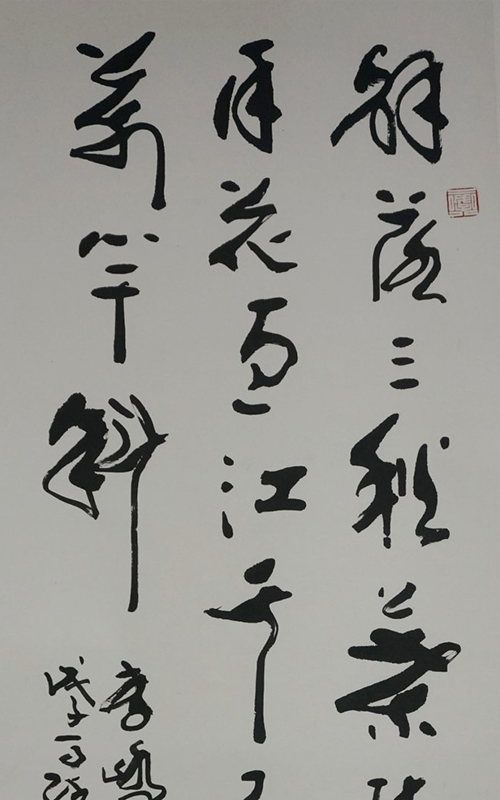 解落三秋葉
月花過江千
萬竿斜
李嶠
戊子